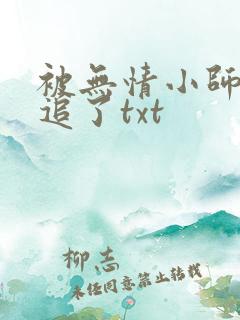 被無情小師
追了txt
柳志
未经同意禁止转载